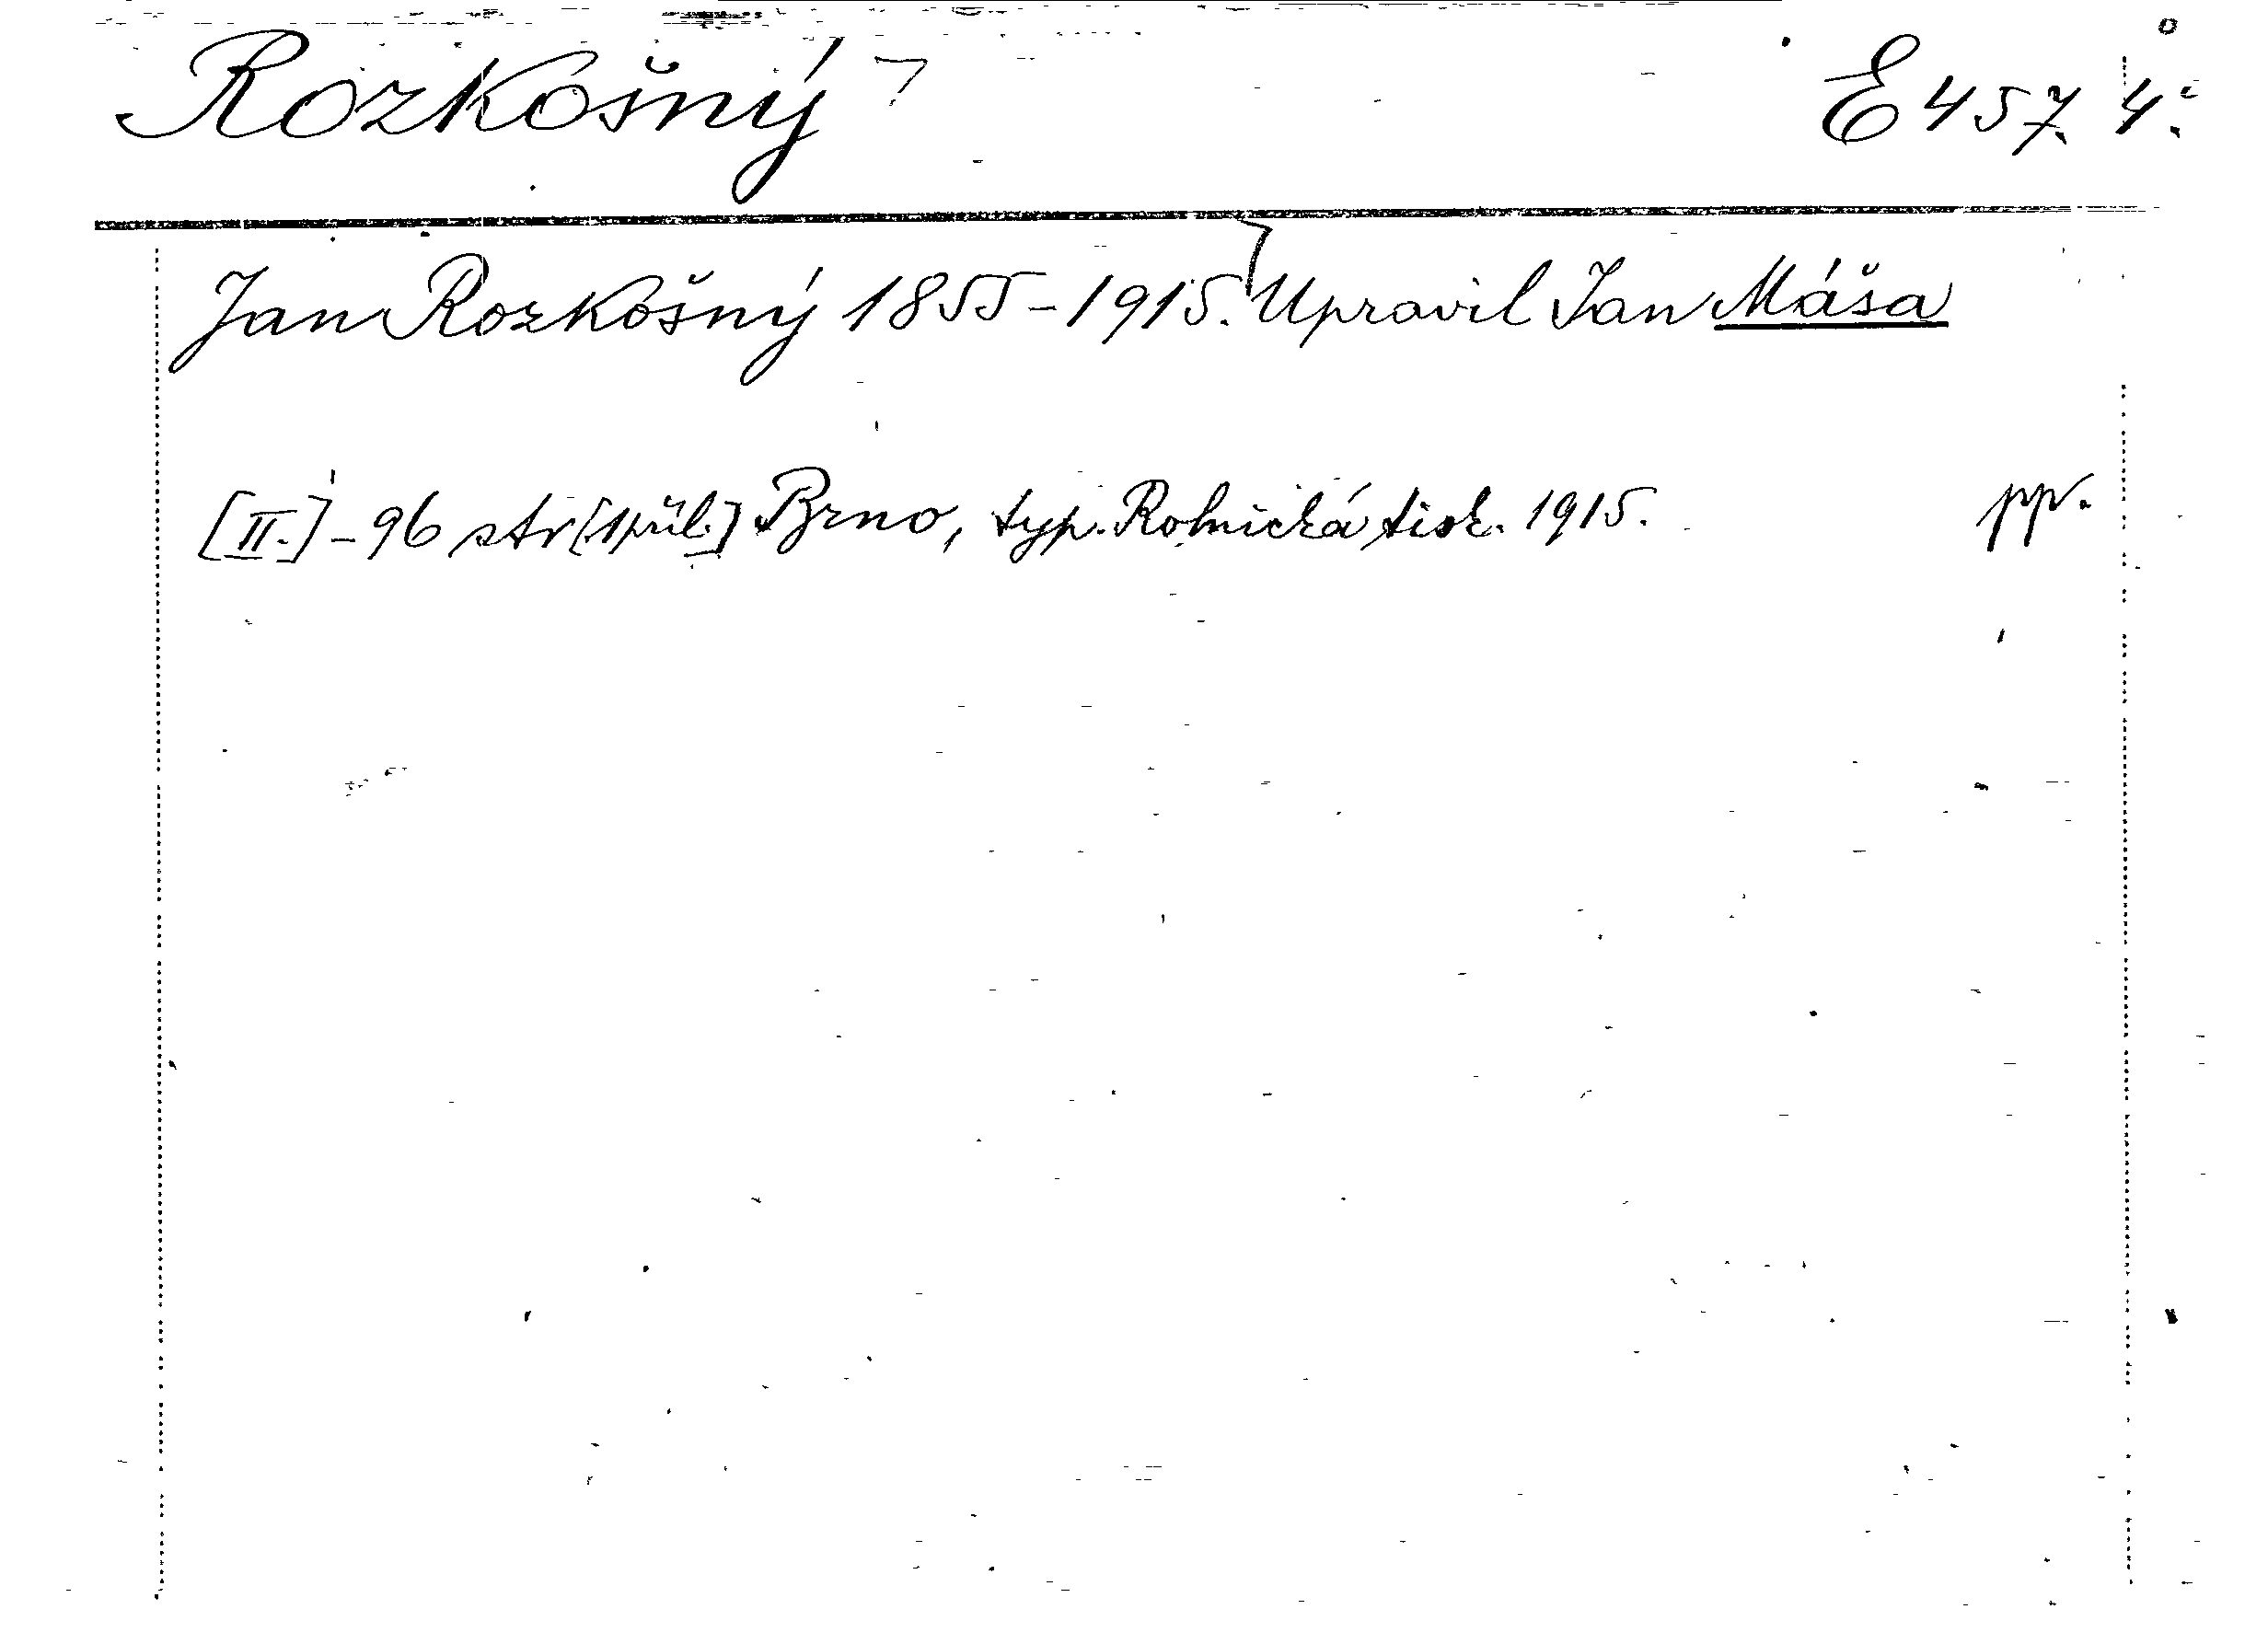 Rozkošný E 457. 4º.
Jan Rozkošný 1855-1915. Upravil Jan Máša
[II.] - 96 str [1 příl.] Brno, typ. Rolnická tisk. 1915. ppr.